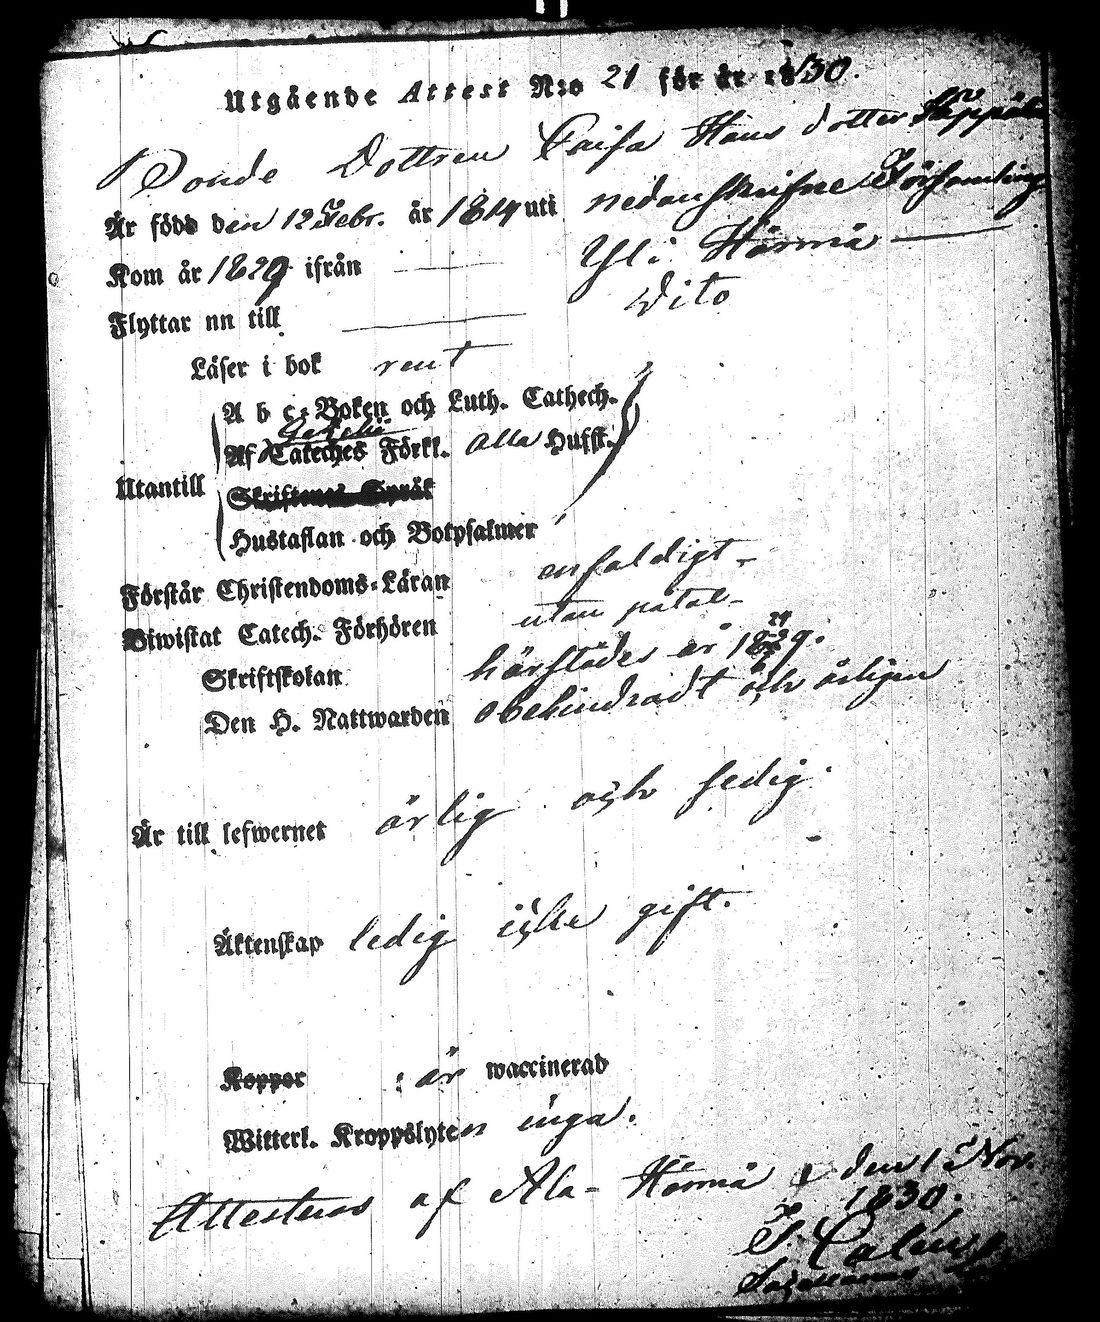 Utgående Attest N:o 21 för år 1830.
Bonde Dottren Caisa Hans dotter
Är född den 12 Febr. år 1814 uti nedanskrifne Församling
Kom år 1829 ifrån — Yli Härmä —
Flyttar nu till — Dito
Läser i bok rent
A b c-Boken och Luth. Cathech.
Utantill
Af Cateches Förkl. alla Hufst.
Skriftenes Språk
Hustaflan och Botpsalmer
Förstår Christendoms-Läran enfaldigt
Biwistat Catech. Förhören utan påtal
Skriftskolan härstädes år 1829.
Den H. Nattwarden obehindradt och årligen
Är till lefwernet ärlig och sedig.
Äktenskap ledig icke gift.
Koppor : är waccinerad
Witterl. Kroppslyten inga.
Attesteras af Ala-Härmä den 1 Nov.
1830.